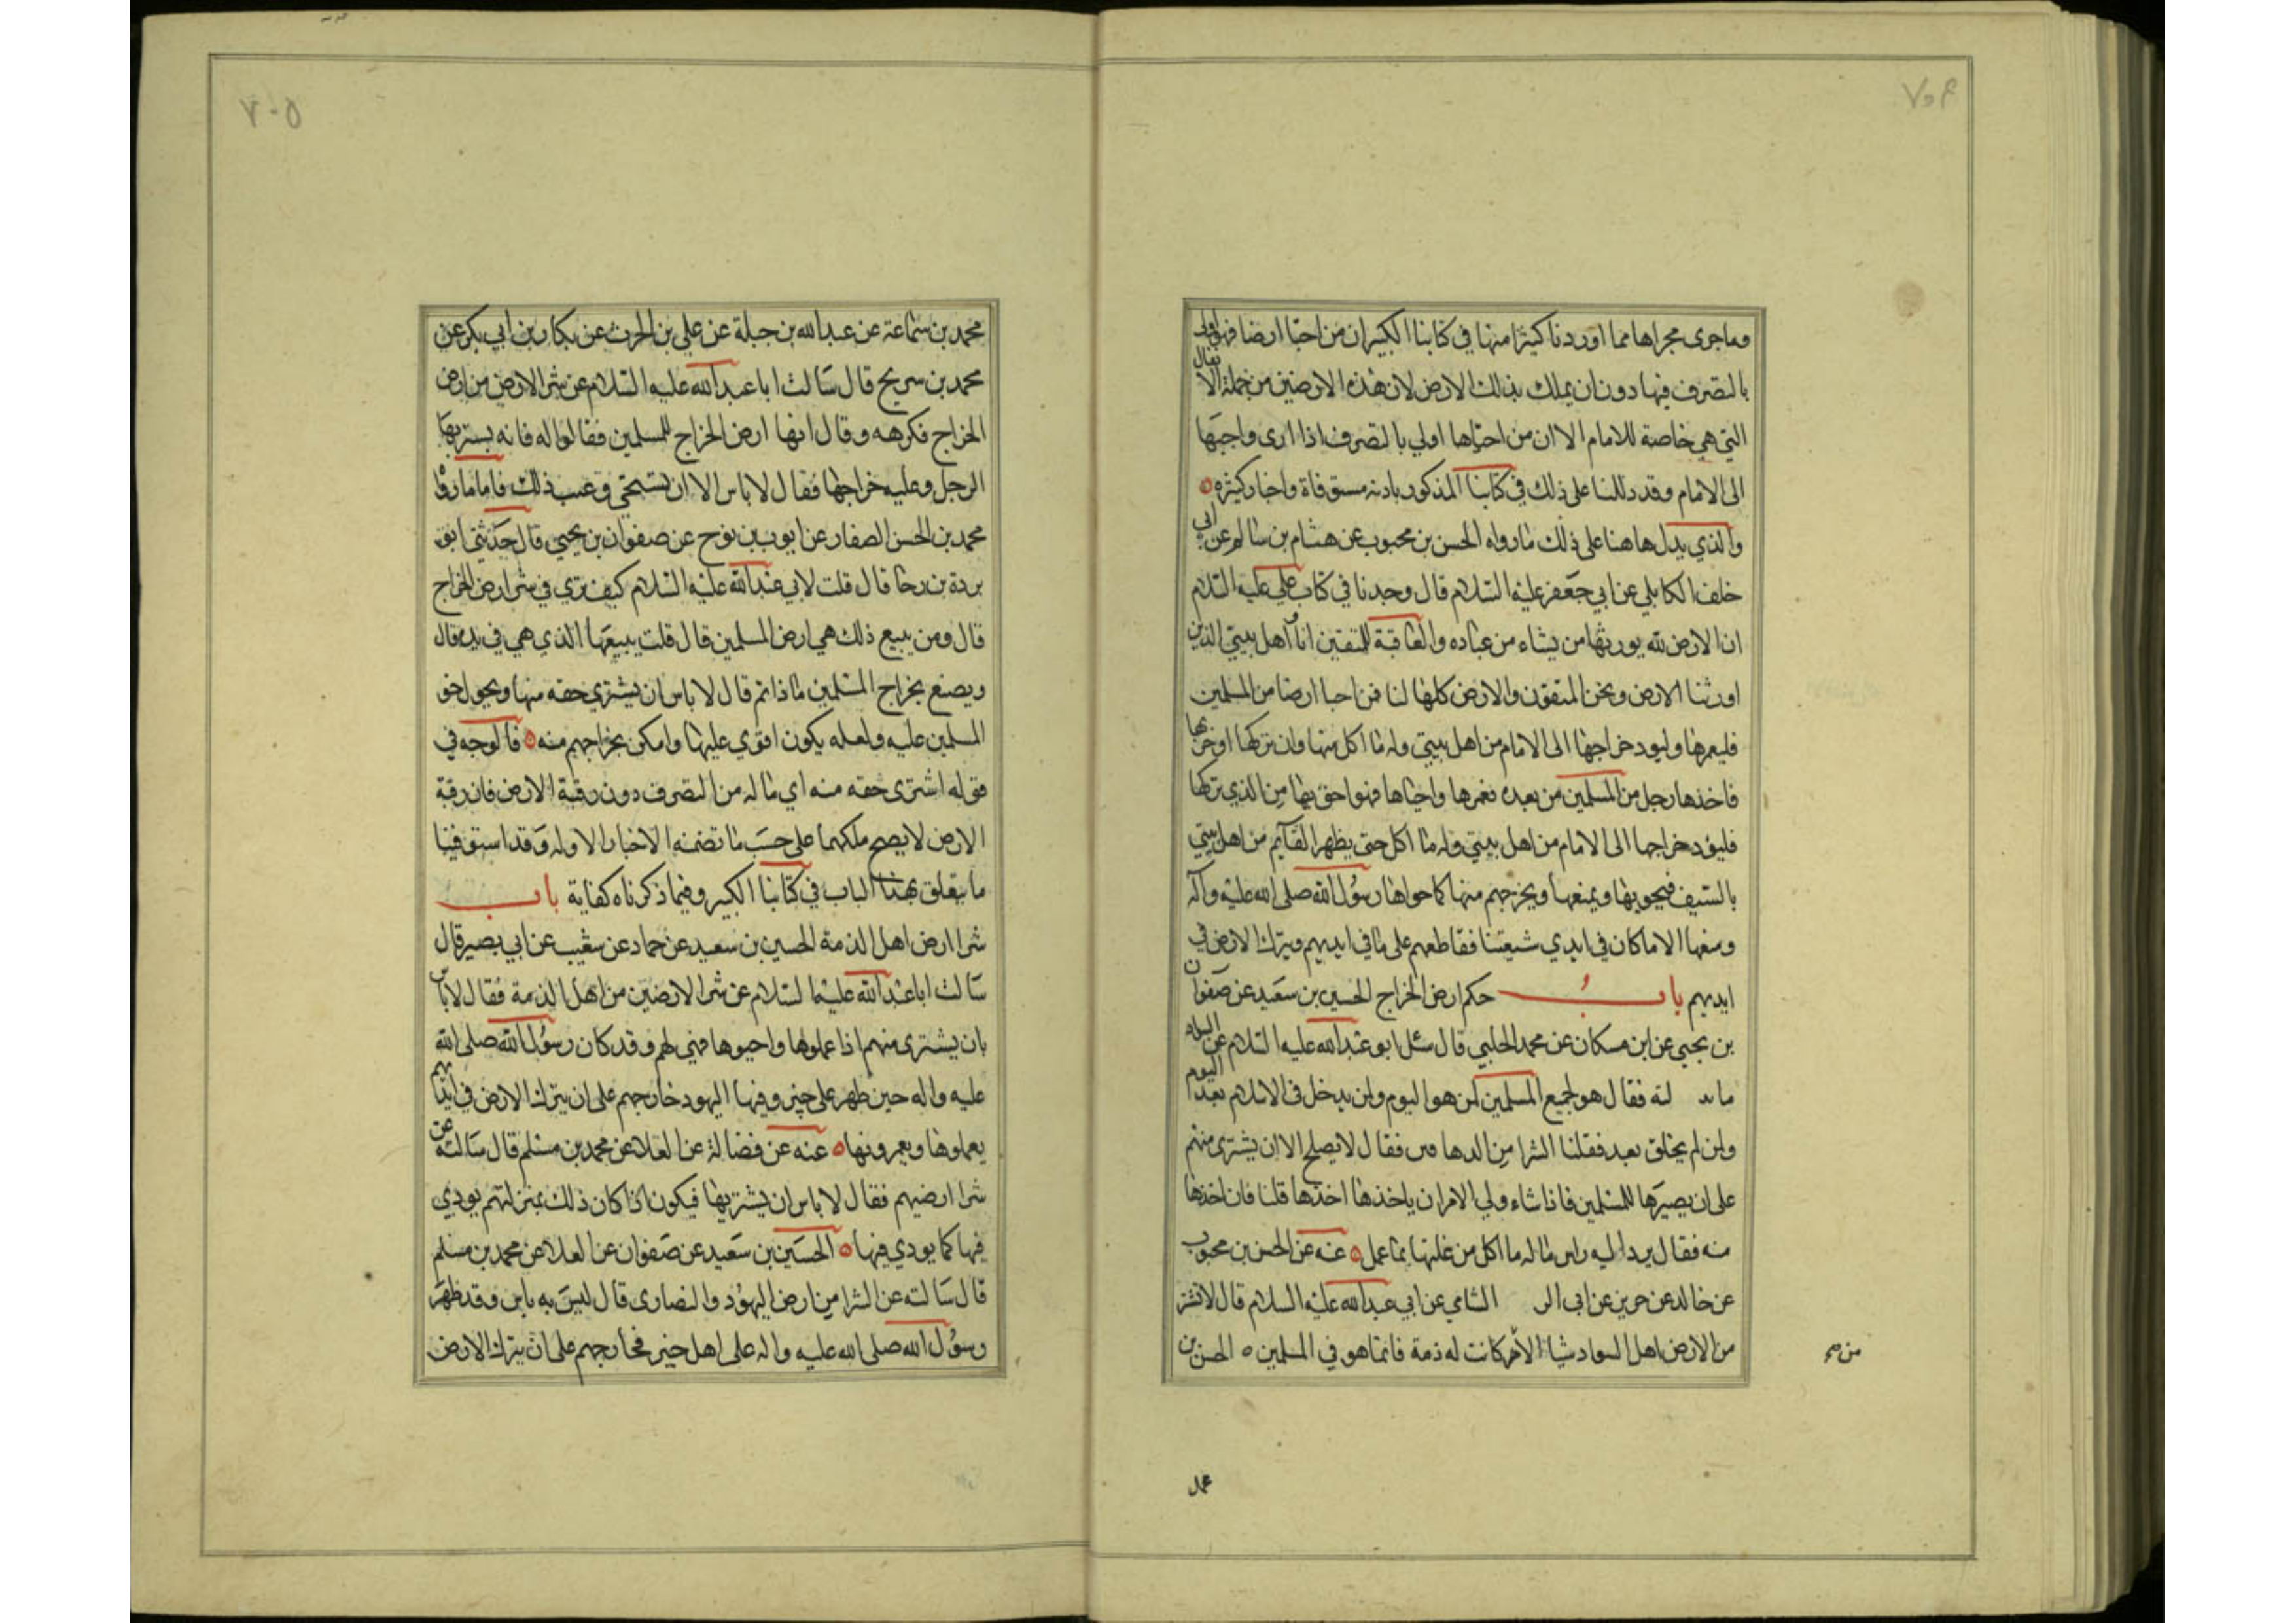 وما جرى مجراها مما اوردنا كثيرا منها في كتابنا الكبير ان من احيا ارضا فهو اولى
بالتصرف فيها دون ان يملك بذلك الارض لان هذه الارضين من جملة الانفال
التي هي خاصة للامام الا ان من احياها اولى بالتصرف اذا ادى واجبها
الى الامام وقد دللنا على ذلك في كتابنا المذكور بادلة مستوفاة واخبار كثيرة
والذي يدل هاهنا على ذلك ما رواه الحسن بن محبوب عن هشام بن سالم عن ابي
خلف الكابلي عن ابي جعفر عليه السلام قال وجدنا في كتاب علي عليه السلام
ان الارض لله يورثها من يشاء من عباده والعاقبة للمتقين انا واهل بيتي الذين
اورثنا الارض ونحن المتقون والارض كلها لنا فمن احيا ارضا من المسلمين
فليعمرها وليود خراجها الى الامام من اهل بيتي وله ما اكل منها وان تركها او خربها
فاخذها رجل من المسلمين من بعده فعمرها واحياها فهو احق بها من الذي تركها
فليؤد خراجها الى الامام من اهل بيتي وله ما اكل حتى يظهر القايم من اهل بيتي
بالسيف فيحويها ويمنعها ويخرجهم منها كما حواها رسول الله صلى الله عليه وآله
ومنعها الا ما كان في ايدي شيعتنا فقاطعهم على ما في ايديهم ويترك الارض في
ايديهم باب حكم ارض الخراج الحسين بن سعيد عن صفوان
بن يحيى عن ابن مسكان عن محمد الحلبي قال سئل ابو عبد الله عليه السلام عن السواد
ما لته فقال هو لجميع المسلمين لمن هو اليوم ولمن يدخل في الاسلام بعد اليوم
ولمن لم يخلق بعد فقلنا الشرا من الدهاقين فقال لا يصلح الا ان يشترى منهم
على ان يصيرها للمسلمين فاذا شاء ولي الامر ان ياخذها اخذها قلنا فان اخذها
منه فقال يرد اليه راس ماله وله ما اكل من غلتها بما عمل عنه عن الحسن بن محبوب
عن خالد عن جرير عن ابي الر الشامي عن ابي عبد الله عليه السلام قال لا تشتر
من الارض اهل السواد شيئا الا من كانت له ذمة فانما هو في المسلمين الحسن بن
من صح
محمد بن سماعة عن عبد الله بن جبلة عن علي بن الحرث عن بكار بن ابي بكر عن
محمد بن سريح قال سالت ابا عبد الله عليه السلام عن شرا الارض من ارض
الخراج فكرهه وقال انها ارض الخراج للمسلمين فقالوا له فانه يشتريها
الرجل وعليه خراجها فقال لا باس الا ان يستحيي من عيب ذلك فاما ما رواه
محمد بن الحسن الصفار عن ايوب بن نوح عن صفوان بن يحيى قال حدثني ابو
بردة بن رجا قال قلت لابي عبد الله عليه السلام كيف ترى في شرا ارض الخراج
قال ومن يبيع ذلك هي ارض المسلمين قال قلت يبيعها الذي هي في يده قال
ويصنع بخراج المسلمين ماذا ثم قال لا باس ان يشتري حقه منها ويحول حق
المسلمين عليه ولعله يكون اقوى عليها وامكن بخراجهم منه فالوجه في
قوله اشترى حقه منه اي ما له من التصرف دون رقبة الارض فان رقبة
الارض لا يصح ملكها على حسب ما تضمنه الاخبار الاوله وقد استوفينا
ما يتعلق بهذا الباب في كتابنا الكبير وفيما ذكرناه كفاية باب
شرا ارض اهل الذمة الحسين بن سعيد عن حماد عن شعيب عن ابي بصير قال
سالت ابا عبد الله عليه السلام عن شرا الارضين من اهل الذمة فقال لا باس
بان يشترى منهم اذا عملوها واحيوها فهي لهم وقد كان رسول الله صلى الله
عليه واله حين ظهر على خيبر وفيها اليهود خارجهم على ان يترك الارض في ايديهم
يعملوها ويعمرونها عنه عن فضالة عن العلا عن محمد بن مسلم قال سالته عن
شرا ارضيهم فقال لا باس ان يشتريها فيكون اذا كان ذلك بمنزلتهم يودي
فيها كما يودي فيها الحسين بن سعيد عن صفوان عن العلا عن محمد بن مسلم
قال سالته عن الشرا من ارض اليهود والنصارى قال ليس به باس وقد ظهر
رسول الله صلى الله عليه واله على اهل خيبر فخارجهم على ان يترك الارض